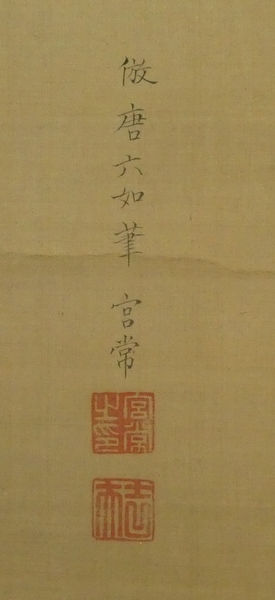 倣唐六如筆 宮常
宮常之印